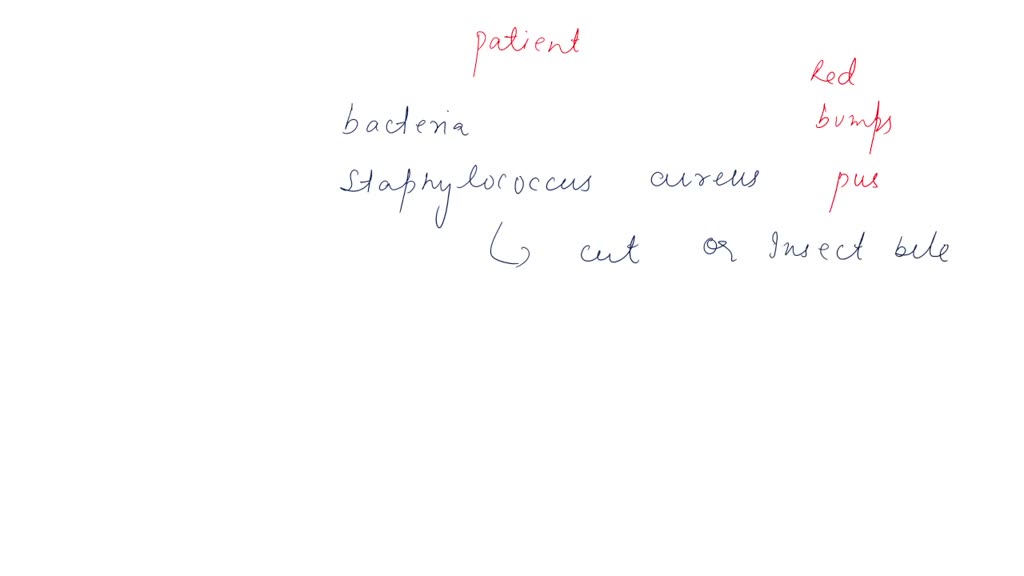 patient
Red
bacteria bumps
Staphylococcus aureus pus
cut or Insect bite